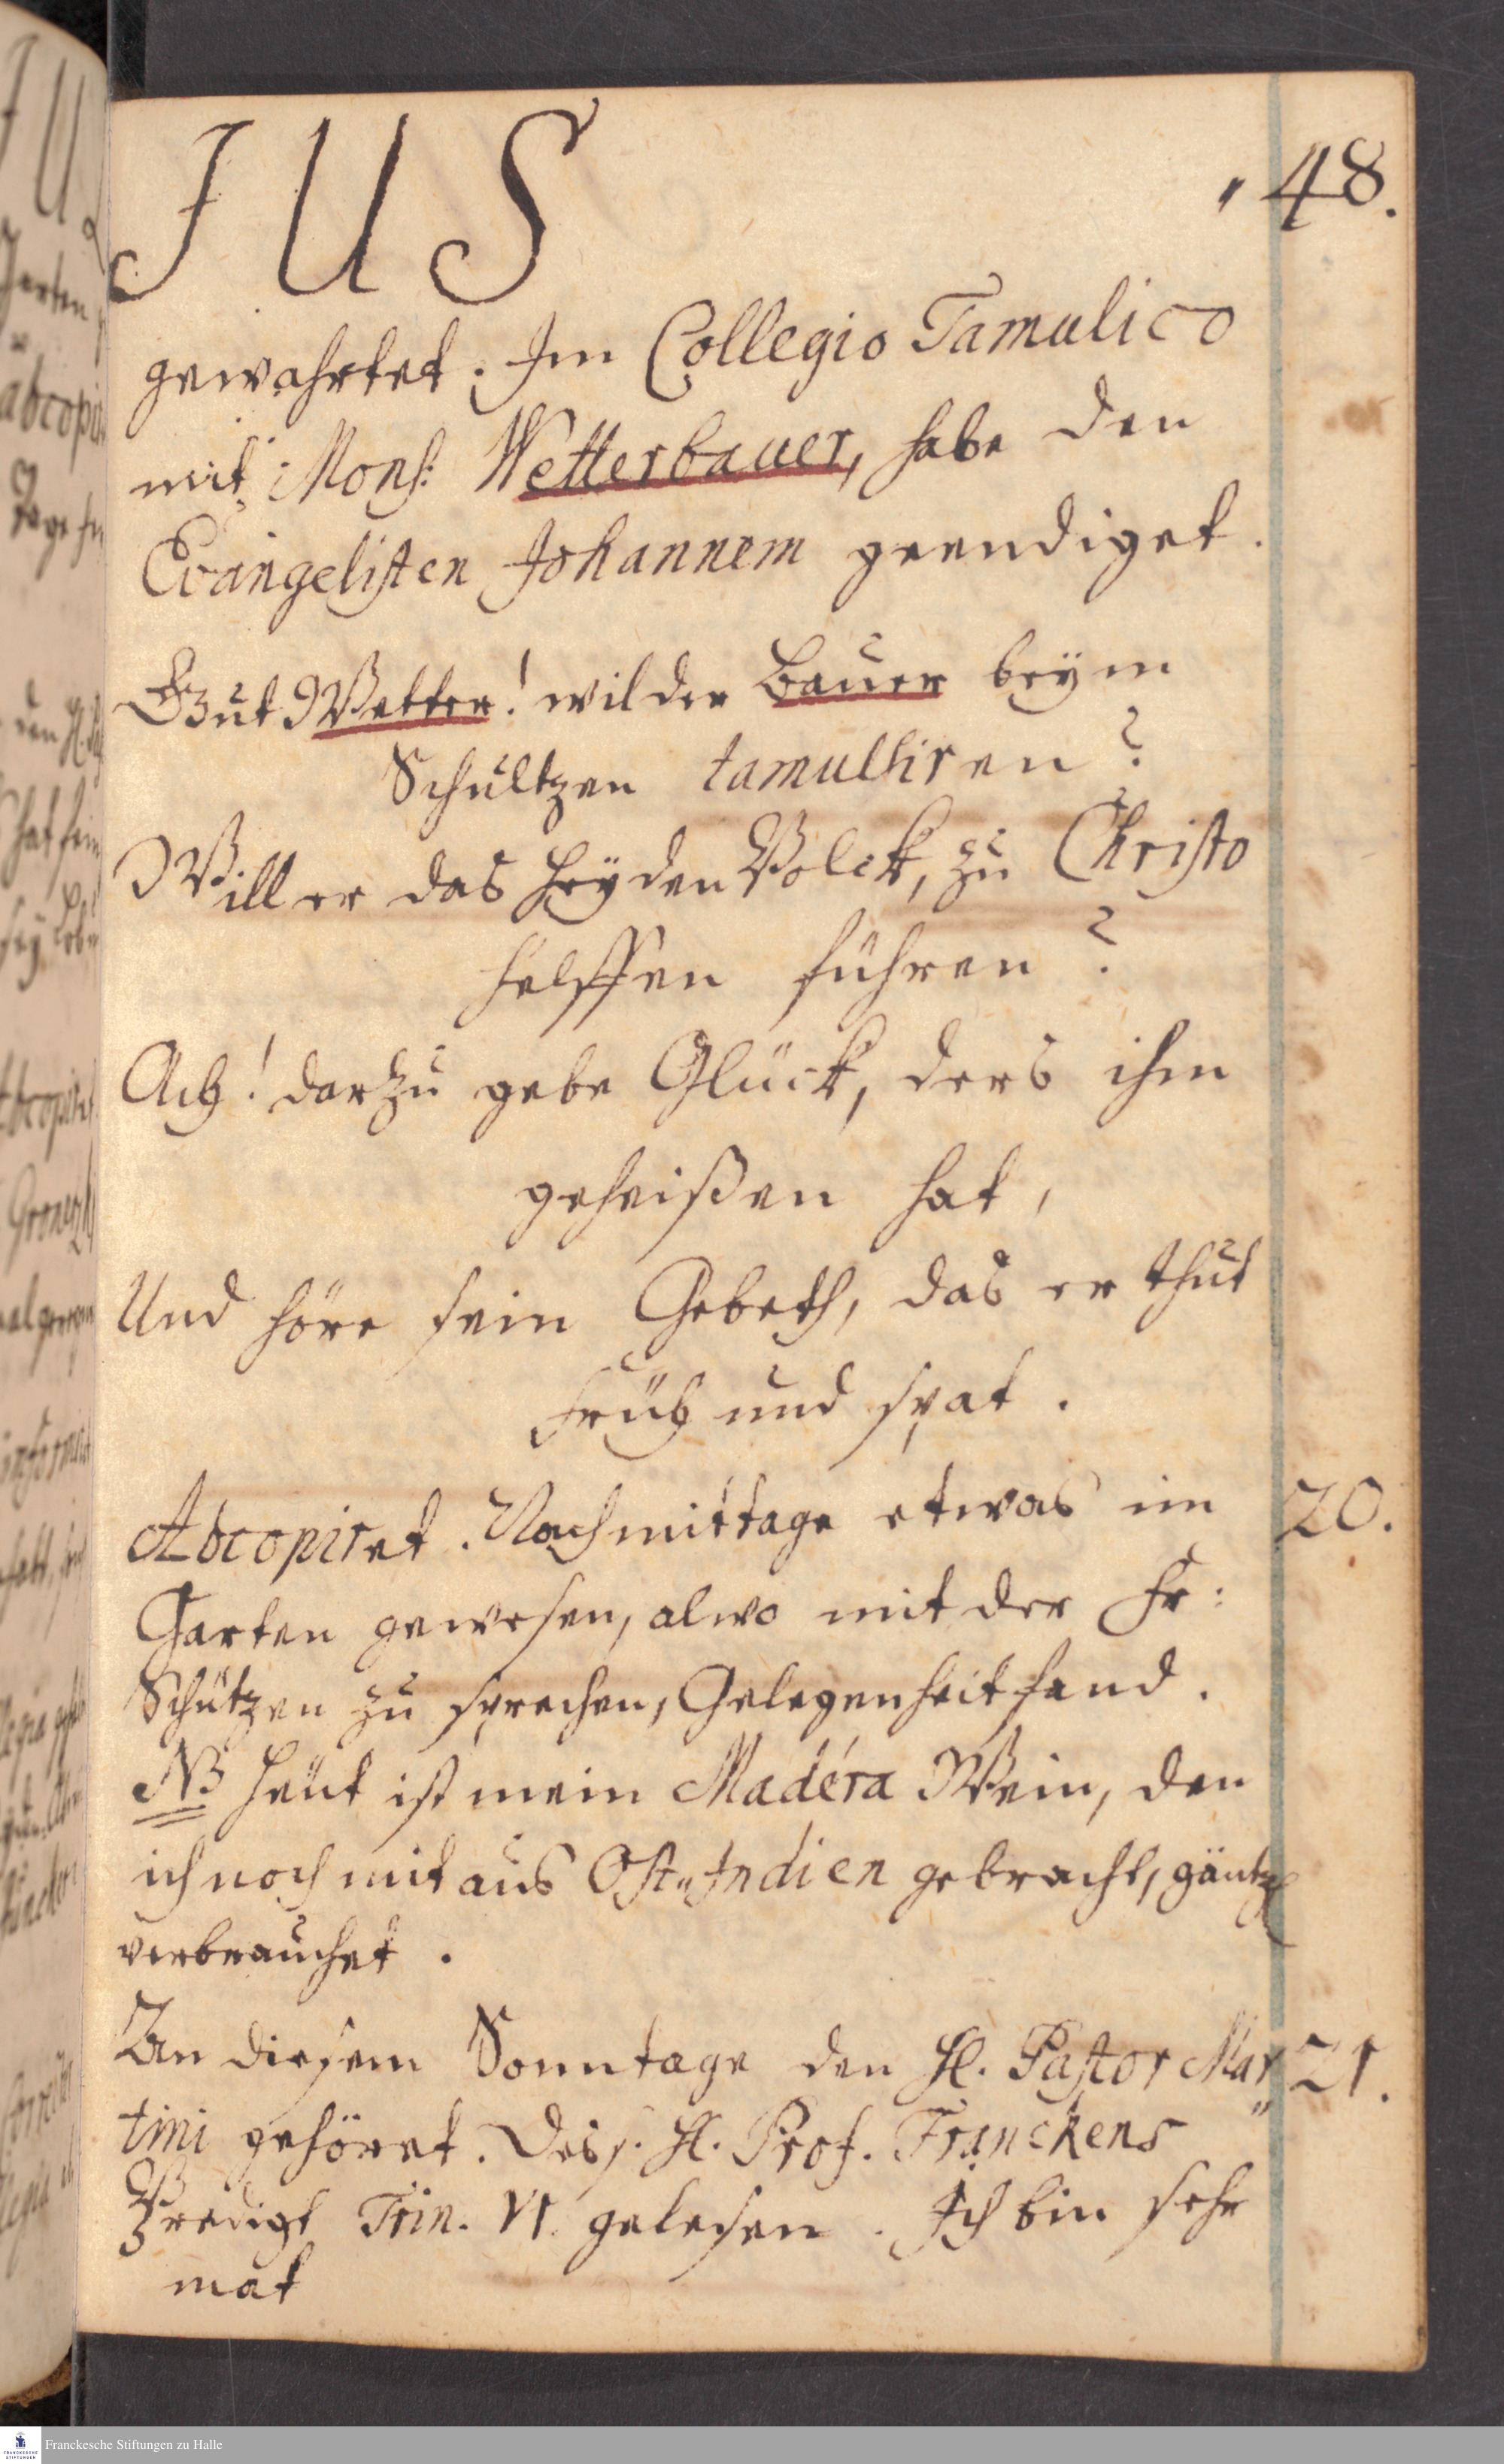 IUS
" 48.
gewahrtet. Im Collegio Tamulico
mit Mons: Wetterbauer, habe den
Evangelisten Johannem geendiget.
Gut Wetter! wil der Bauer beÿm
Schultzen tamulhiren?
Will er das HeÿdenVolck, zu Christo
helffen führen?
Ach! darzu gebe Glück, ders ihm
geheißen hat,
Und höre sein Gebeth, das er thut
früh und spat.
Abcopiret. Nachmittage etwas im
20.
Garten gewesen, alwo mit der Fr:
Schützen zu sprechen, Gelegenheit fand.
NB Heut ist mein Madéra Wein, den
ich noch mit aus Ost-Indien gebracht, gäntzl
verbrauchet.
An diesem Sonntage den H. Pastor Mar"
21.
tini gehöret. Des s. H. Prof. Franckens
Predigt Trin. VI. gelesen. Ich bin sehr
mat
Franckesche Stiftungen zu Halle